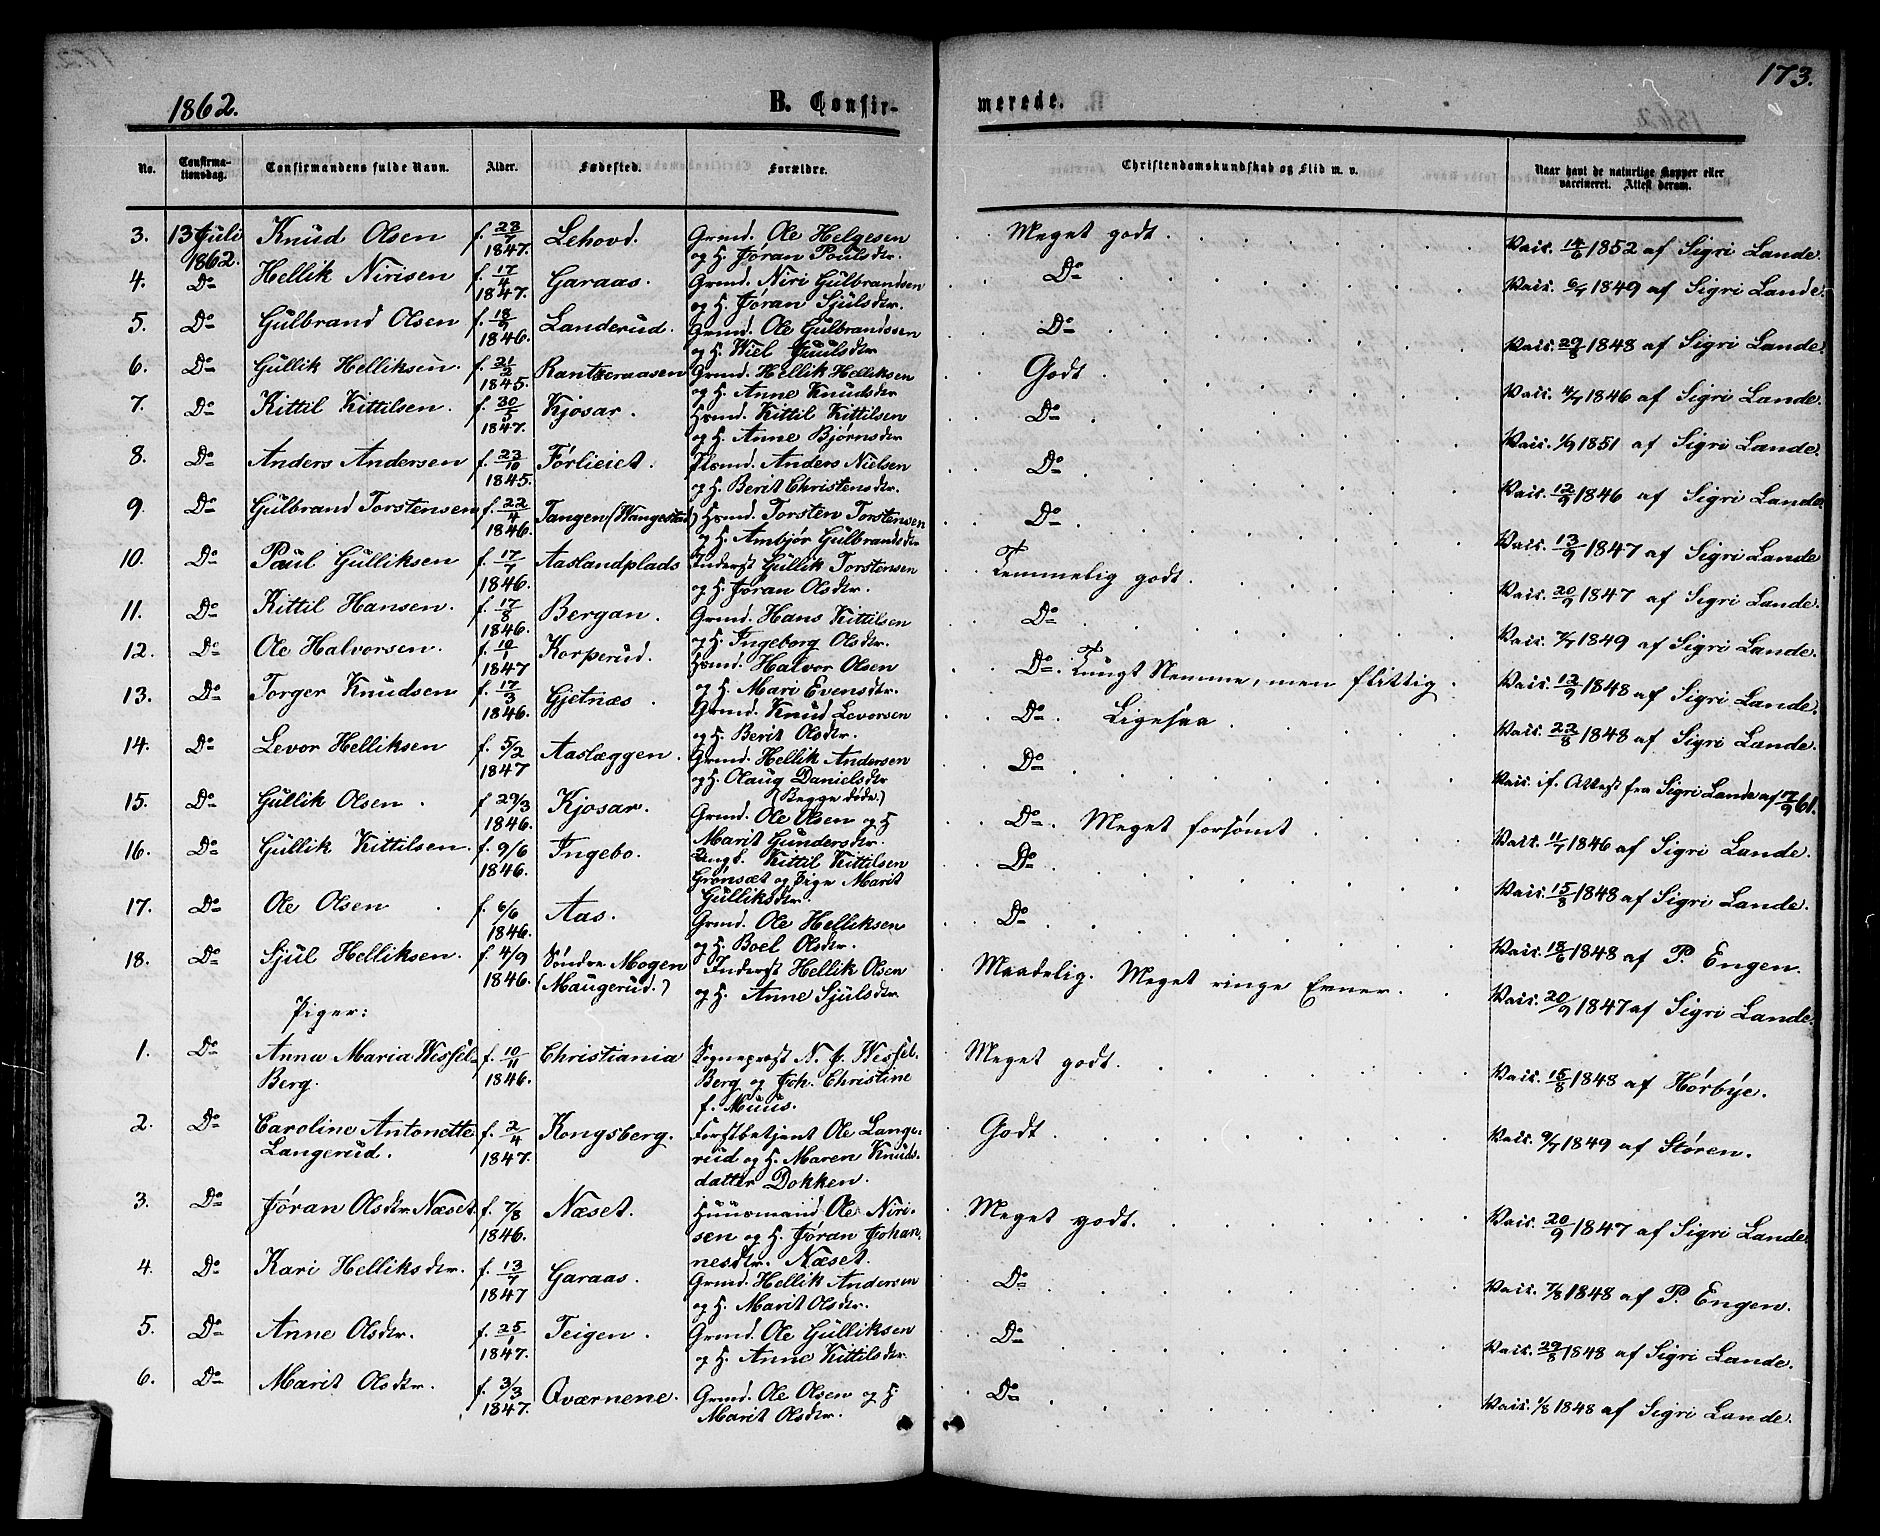 173.
1862. B. Confirmerede.
No. Confirmationsdag. Confirmandens fulde Navn. Alder. Fødested. Forældre. Christendomskundskab og Flid m. v. Naar havt de naturlige Kopper eller vaccineret. Attest derom.
3. 13 Juli 1862. Knud Olsen f. 23/7 1847. Lehovd. Grmd. Ole Helgesen og H. Jøran Poulsdtr. Meget godt. Vaic. 14/6 1852 af Sigri Lande.
4. Do Hellik Nirisen f. 17/4 1847. Garaas. Grmd. Niri Gulbrandsen og H. Jøran Sjulsdtr. Do Vaic. 6/7 1849 af Sigri Lande.
5. Do Gulbrand Olsen f. 18/9 1846. Landerud. Grmd. Ole Gulbrandssen og H. Wiel Juulsdtr. Do Vaic. 29/8 1848 af Sigri Lande.
6. Do Gullik Helliksen. f. 21/2 1845. Rantzeraasen Grmd. Hellik Helliksen og H. Anne Knudsdtr Godt Vaic. 4/7 1846 af Sigri Lande.
7. Do Kittil Kittilsen. f. 30/5 1847. Kjosar. Hsmd. Kittil Kittilsen og H. Anne Bjørnsdtr Do Vaic. 1/9 1851 af Sigri Lande.
8. Do Anders Andersen f. 23/10 1845. Førlieiet. Hsmd. Anders Nielsen og H. Berit Christensdtr. Do Vaic. 12/9 1846 af Sigri Lande.
9. Do Gulbrand Torstensen f. 22/4 1846. Tangen (Wangestad) Hsmd. Torsten Torstensen og H. Ambjør Gulbrandsdtr Do Vaic. 13/9 1847 af Sigri Lande
10. Do Paul Gulliksen f. 17/7 1846. Aaslandplads Inderst Gullik Torstensen og H. Jøran Olsdtr. Temmelig godt. Vaic. 20/9 1847 af Sigri Lande.
11. Do Kittil Hansen. f. 17/8 1846. Bergan. Grmd. Hans Kittilsen og H. Ingeborg Olsdtr. Do Vaic. 7/7 1849 af Sigri Lande.
12. Do Ole Halvorsen. f. 10/1 1847 Korperud. Hsmd. Halvor Olsen og H. Mari Evensdtr. Do. Tungt Nemme, men flittig. Vaic. 12/9 1848 af Sigri Lande.
13. Do Torger Knudsen f. 17/3 1846. Gjetnæs. Grmd. Knud Levorsen og H. Berit Olsdtr. Do. Ligesaa. Vaic. 22/8 1848 af Sigri Lande.
14. Do Levor Helliksen f. 5/2 1847 Aaslæggen. Grmd. Hellik Andersen og H. Olaug Danielsdtr (Begge døde.) Do Vaic. if. Attest fra Sigri Lande af 7/9 61.
15. Do Gullik Olsen. f 29/3 1846. Kjosar. Grmd. Ole Olsen og H Marit Gundersdtr. Do. Meget forsømt Vaic. 11/7 1846 af Sigri Lande.
16. Do Gullik Kittilsen. f. 9/6 1846. Ingebo. Ungk. Kittil Kittilsen Grønsæt og Pige Marit Gulliksdtr. Do Vaic. 15/8 1848 af Sigri Lande.
17. Do Ole Olsen f. 6/6 1846. Aas. Grmd. Ole Helliksen og H. Boel Olsdtr. Do Vaic. 18/6 1848 af P. Engen.
18. Do Sjul Helliksen. f. 4/9 1846. Søndre Mogen (Maugerud.) Inderst Hellik Olsen og H. Anne Sjulsdtr. Maadelig. Meget ringe Evner. Vaic. 20/9 1847 af Sigri Lande.
Piger:
1. Do Anna Maria Wessel-Berg. f. 10/11 1846. Christiania Sognepræst N. J. Wessel-Berg og Joh. Christine f. Muus. Meget godt. Vaic. 15/8 1848 af Hørbye.
2. Do Caroline Antonette Langerud. f. 2/4 1847. Kongsberg. Forstbetjent Ole Langerud og H. Maren Knudsdatter Dokken. Godt. Vaic. 9/7 1849 af Støren.
3. Do Jøran Olsdtr. Næset. f. 7/8 1846. Næset. Huusmand Ole Nirisen og H. Jøran Johannesdtr. Næset. Meget godt. Vaic. 20/9 1847 af Sigri Lande.
4. Do Kari Helliksdtr. f. 13/7 1847 Garaas. Grmd. Hellik Andersen og H. Marit Olsdtr. Do Vaic. 7/8 1848 af P. Engen.
5. Do Anne Olsdtr. f. 25/1 1847. Teigen. Grmd. Ole Gulliksen og H. Anne Kittilsdtr. Do Vaic. 29/8 1848 af Sigri Lande.
6. Do Marit Olsdtr. f. 3/3 1847. Qværnene. Grmd. Ole Olsen og H Marit Olsdtr. Do Vaic. 1/8 1848 af Sigri Lande.